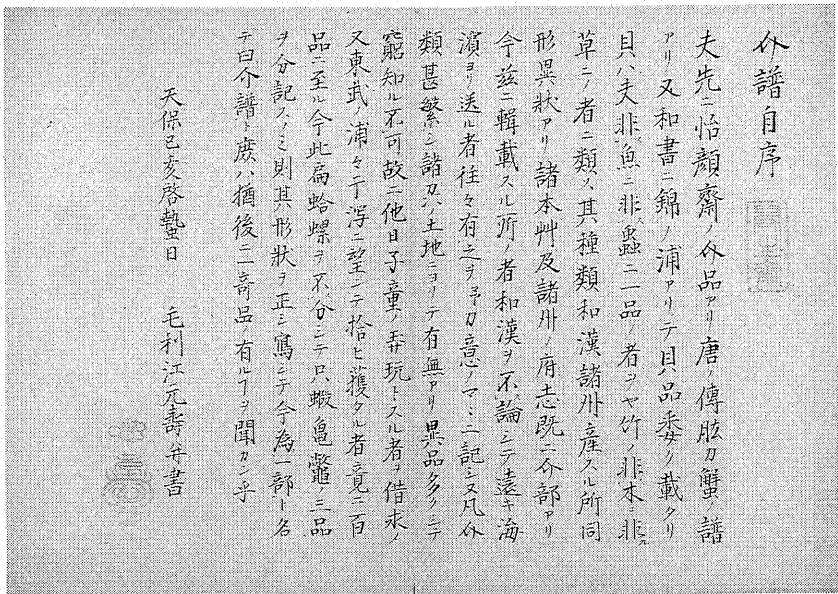 介譜自序
夫先ニ怡顔齋ノ介品アリ唐ノ傳肱カ蟹ノ譜
アリ又和書ニ錦ノ浦アリテ貝品委ク載タリ
貝ハ夫非魚ニ非蟲ニ一品ノ者ヲヤ竹ノ非木ニ非
草ニノ者ニ類ス其種類和漢諸州産スル所同
形異狀アリ諸本艸及諸州ノ府志既ニ介部アリ
今茲ニ輯載スル所ノ者和漢ヲ不論シテ遠キ海
濱ヨリ送ル者往々有之ヲ予カ意ノマヽニ記シ又凡介
類甚繁シ諸州ノ土地ニヨリテ有無アリ異品多クシテ
窮知ル不可故ニ他日子童ノ弄玩トスル者ヲ借求ノ
又東武ノ浦々干潟ニ望シテ拾ヒ獲タル者竟ニ百
品ニ至ル今此扁蛤螺ヲ不分シテ只蝦亀鼈ノ三品
ヲ分記スノミ則其形狀ヲ正シ寫シテ今為一部ト名
テ曰介譜ト庶ハ猶後ニ奇品ノ有ルヿヲ聞カン乎
天保己亥啓蟄日 毛利江元壽并書